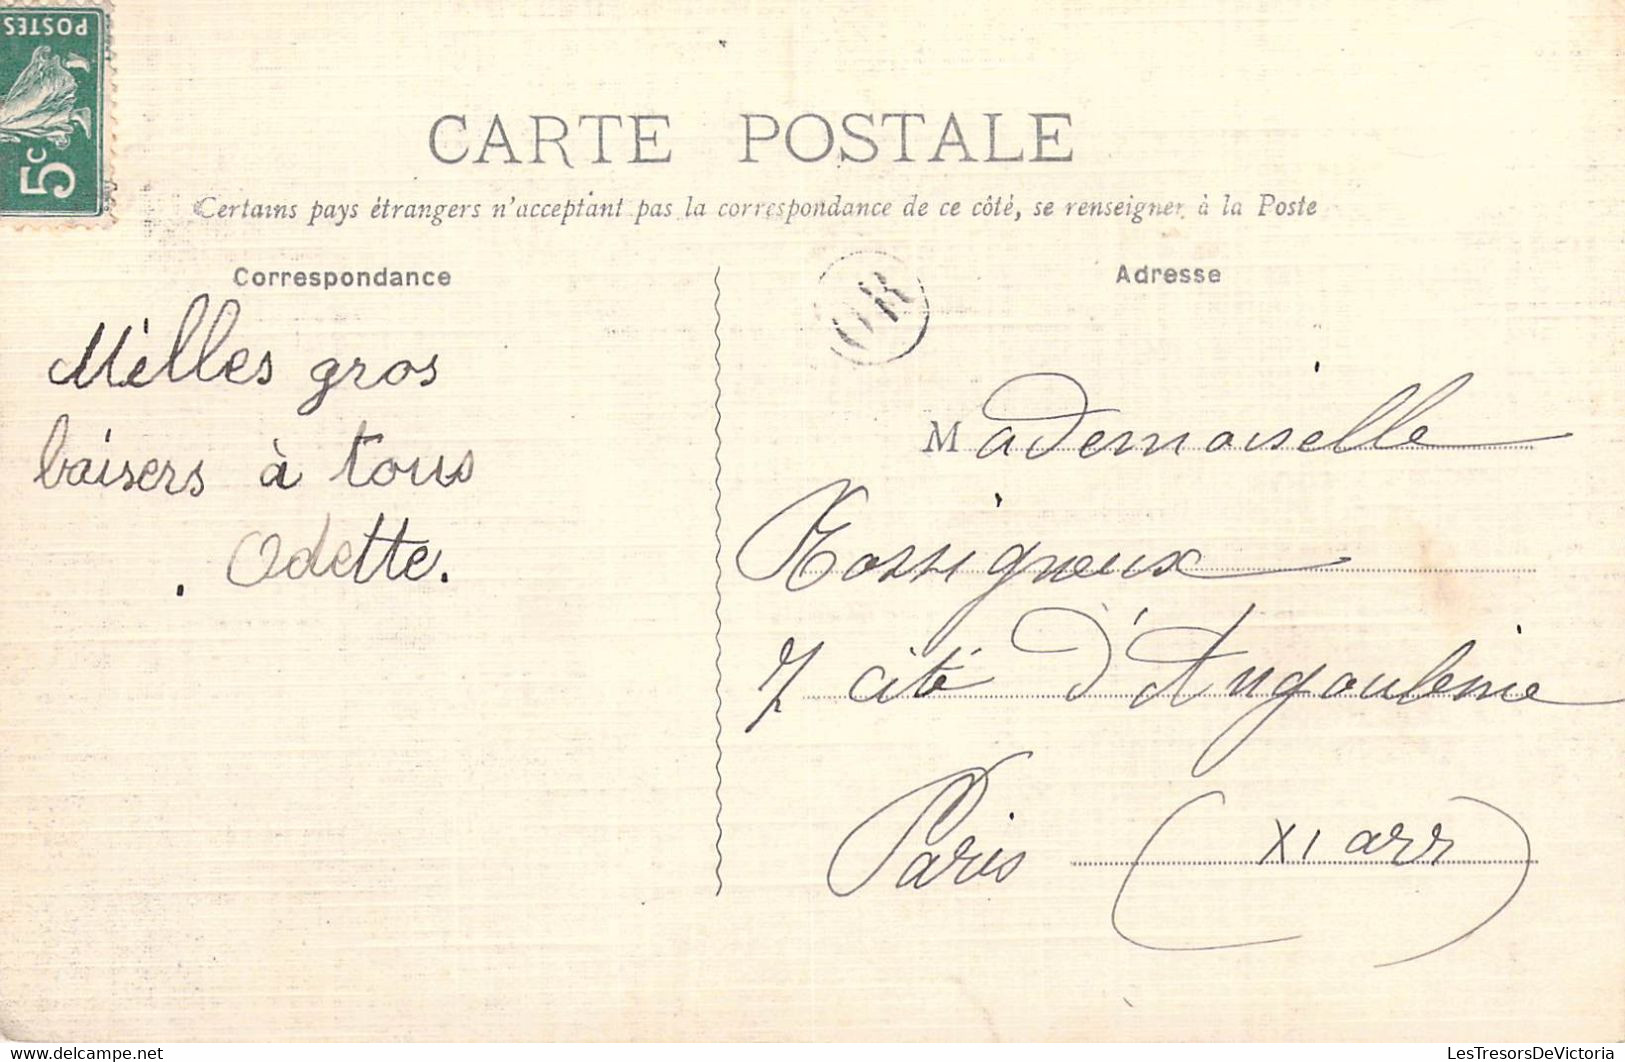 POSTES
5c
CARTE POSTALE
Certains pays étrangers n'acceptant pas la correspondance de ce côté, se renseigner à la Poste
Correspondance
Milles gros
baisers à tous
. Odette.
OR
Adresse
Mademoiselle
Rossigneux
7 cité d'Angoulême
Paris (XI arr)
delcampe.net
LesTresorsDeVictoria